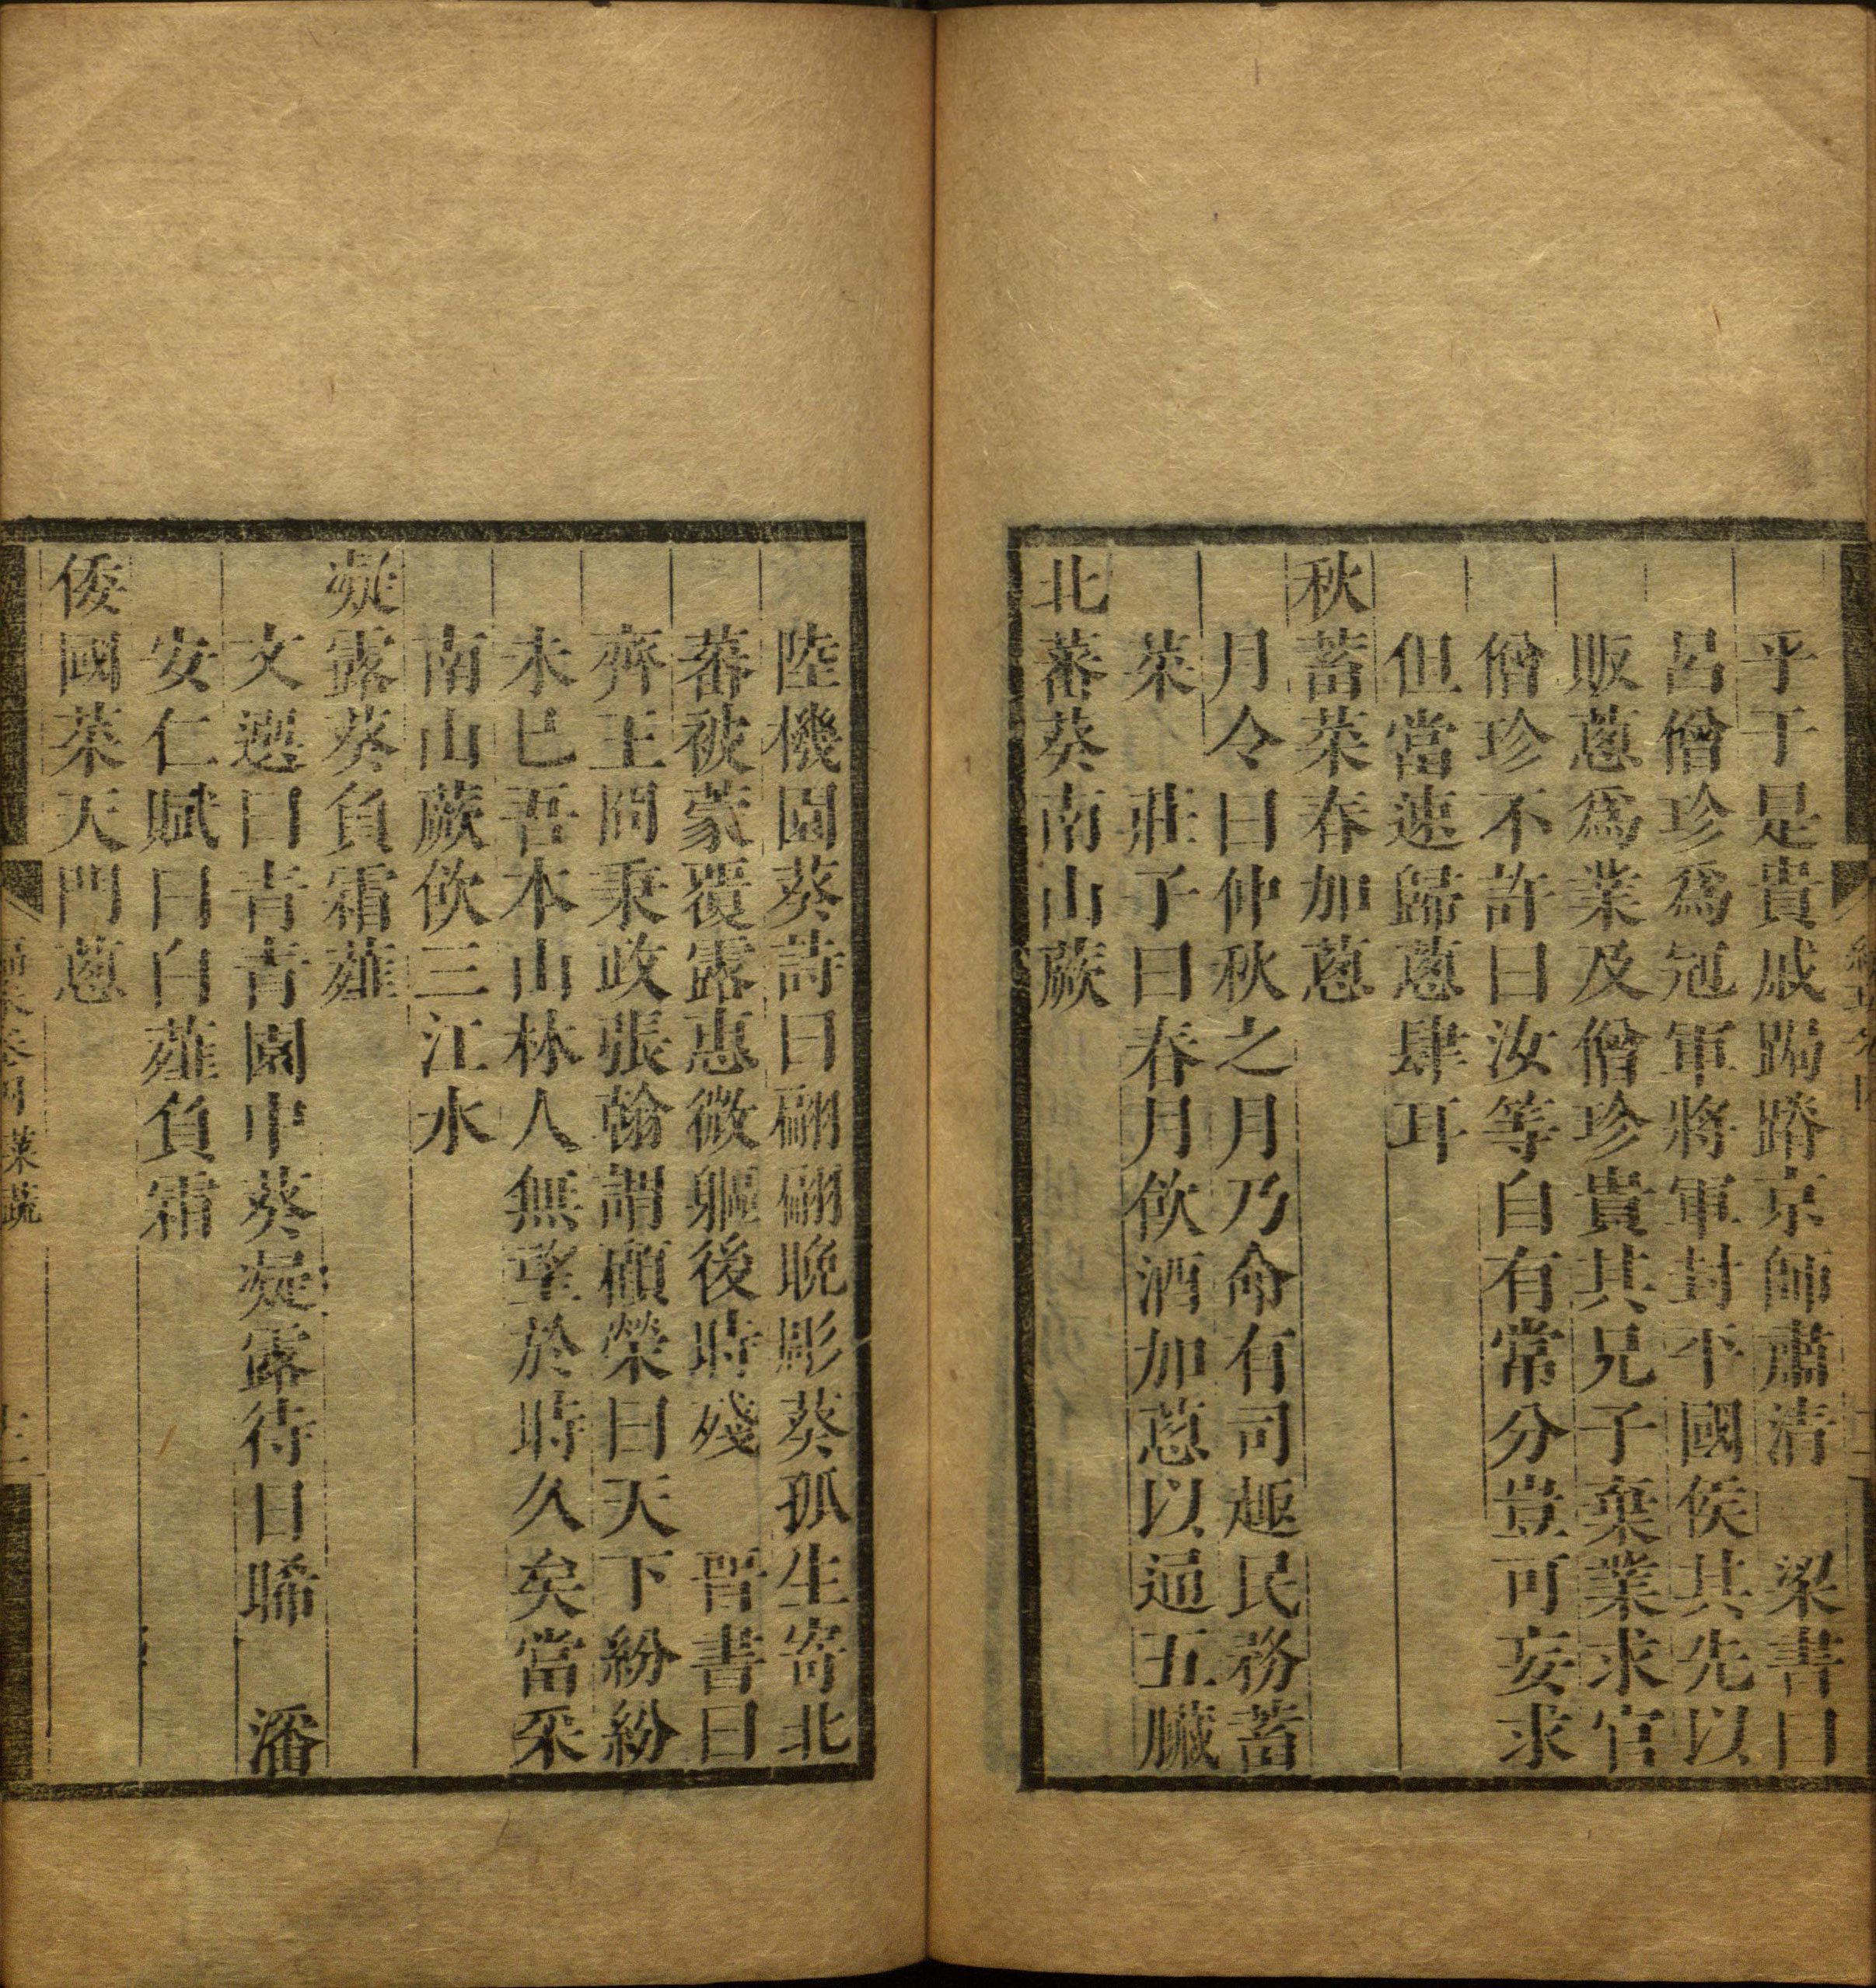 乎于是貴戚跼蹐京師肅清　梁書曰
呂僧珍爲冠軍將軍封平國侯其先以
販蔥爲業及僧珍貴其兄子棄業求官
僧珍不許曰汝等自有常分豈可妄求
但當速歸蔥肆耳
秋蓄菜春加蔥
月令曰仲秋之月乃命有司趣民務蓄
菜　莊子曰春月飲酒加蔥以通五臟
北蕃葵南山蕨
陸機園葵詩曰翩翩晚彫葵孤生寄北
蕃被蒙覆露惠微軀後時殘　晉書曰
齊王冏秉政張翰謂顧榮曰天下紛紛
未已吾本山林人無望於時久矣當采
南山蕨飲三江水
凝露葵負霜薤
文選曰青青園中葵凝露待日晞　潘
安仁賦曰白薤負霜
倭國菜天門蔥
菜蔬